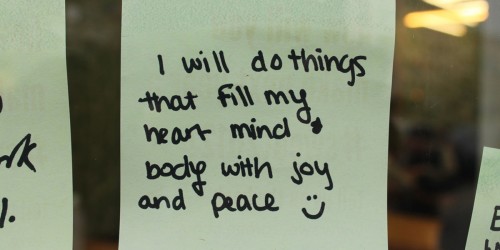 I will do things
that fill my
heart mind &
body with joy
and peace